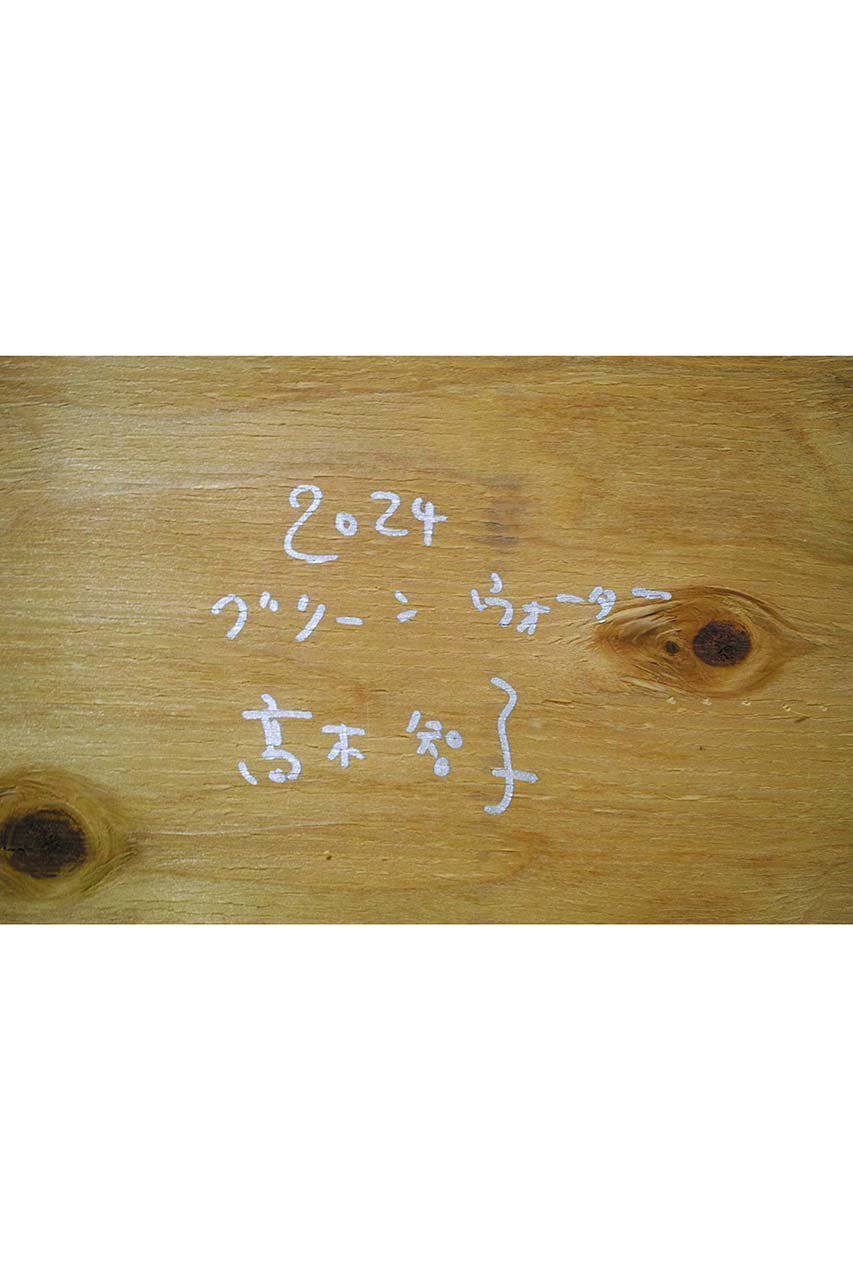 2024
グリーン ウォーター
高木智子